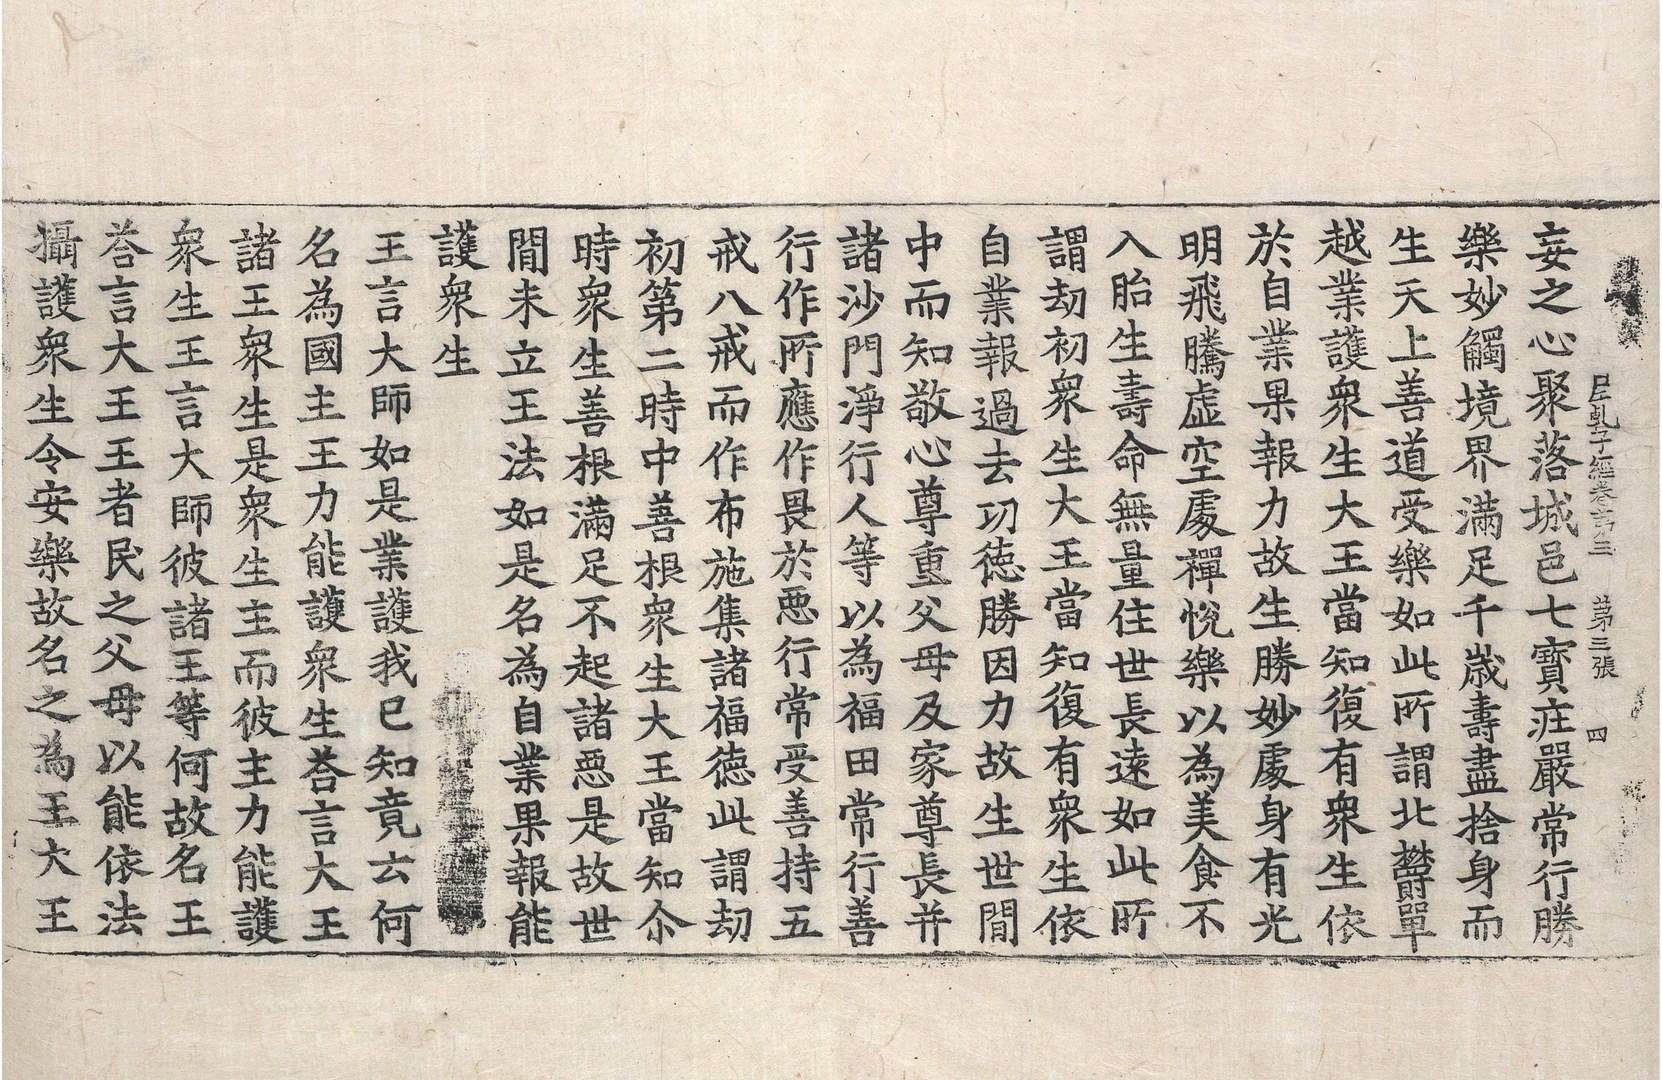 尼乹子經卷第三　第三張　四
妄之心聚落城邑七寳疘嚴常行勝
樂妙觸境界滿足千歳壽盡捨身而
生天上善道受樂如此所謂北欝單
越業護衆生大王當知復有衆生依
於自業果報力故生勝妙處身有光
明飛騰虛空處禪悅樂以為美食不
入胎生壽命無量住世長遠如此所
謂劫初衆生大王當知復有衆生依
自業報過去功德勝因力故生世間
中而知敬心尊重父母及家尊長并
諸沙門淨行人等以為福田常行善
行作所應作畏於惡行常受善持五
戒八戒而作布施集諸福德此謂劫
初第二時中善根衆生大王當知尒
時衆生善根滿足不起諸惡是故世
間未立王法如是名為自業果報能
護衆生
王言大師如是業護我已知竟云何
名為國主王力能護衆生荅言大王
諸王衆生是衆生主而彼主力能護
衆生王言大師彼諸王等何故名王
荅言大王王者民之父母以能依法
攝護衆生令安樂故名之為王大王